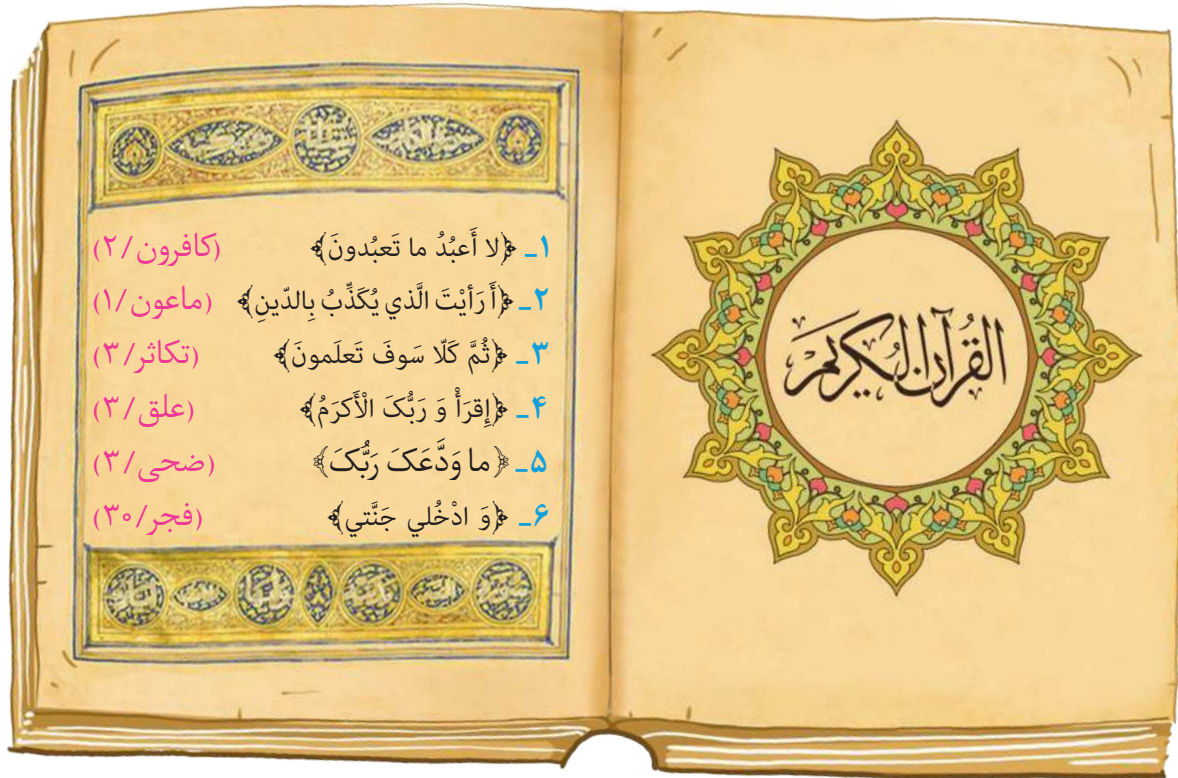 القُرآن الکَریم
۱ـ ﴿لا أَعبُدُ ما تَعبُدونَ﴾ (کافرون/۲)
۲ـ ﴿أَ رَأَیْتَ الَّذي یُکَذِّبُ بِالدّینِ﴾ (ماعون/۱)
۳ـ ﴿ثُمَّ کَلّا سَوفَ تَعلَمونَ﴾ (تکاثر/۳)
۴ـ ﴿إِقرَأْ وَ رَبُّکَ الْأَکرَمُ﴾ (علق/۳)
۵ـ ﴿ما وَدَّعَکَ رَبُّکَ﴾ (ضحی/۳)
۶ـ ﴿وَ ادْخُلي جَنَّتي﴾ (فجر/۳۰)